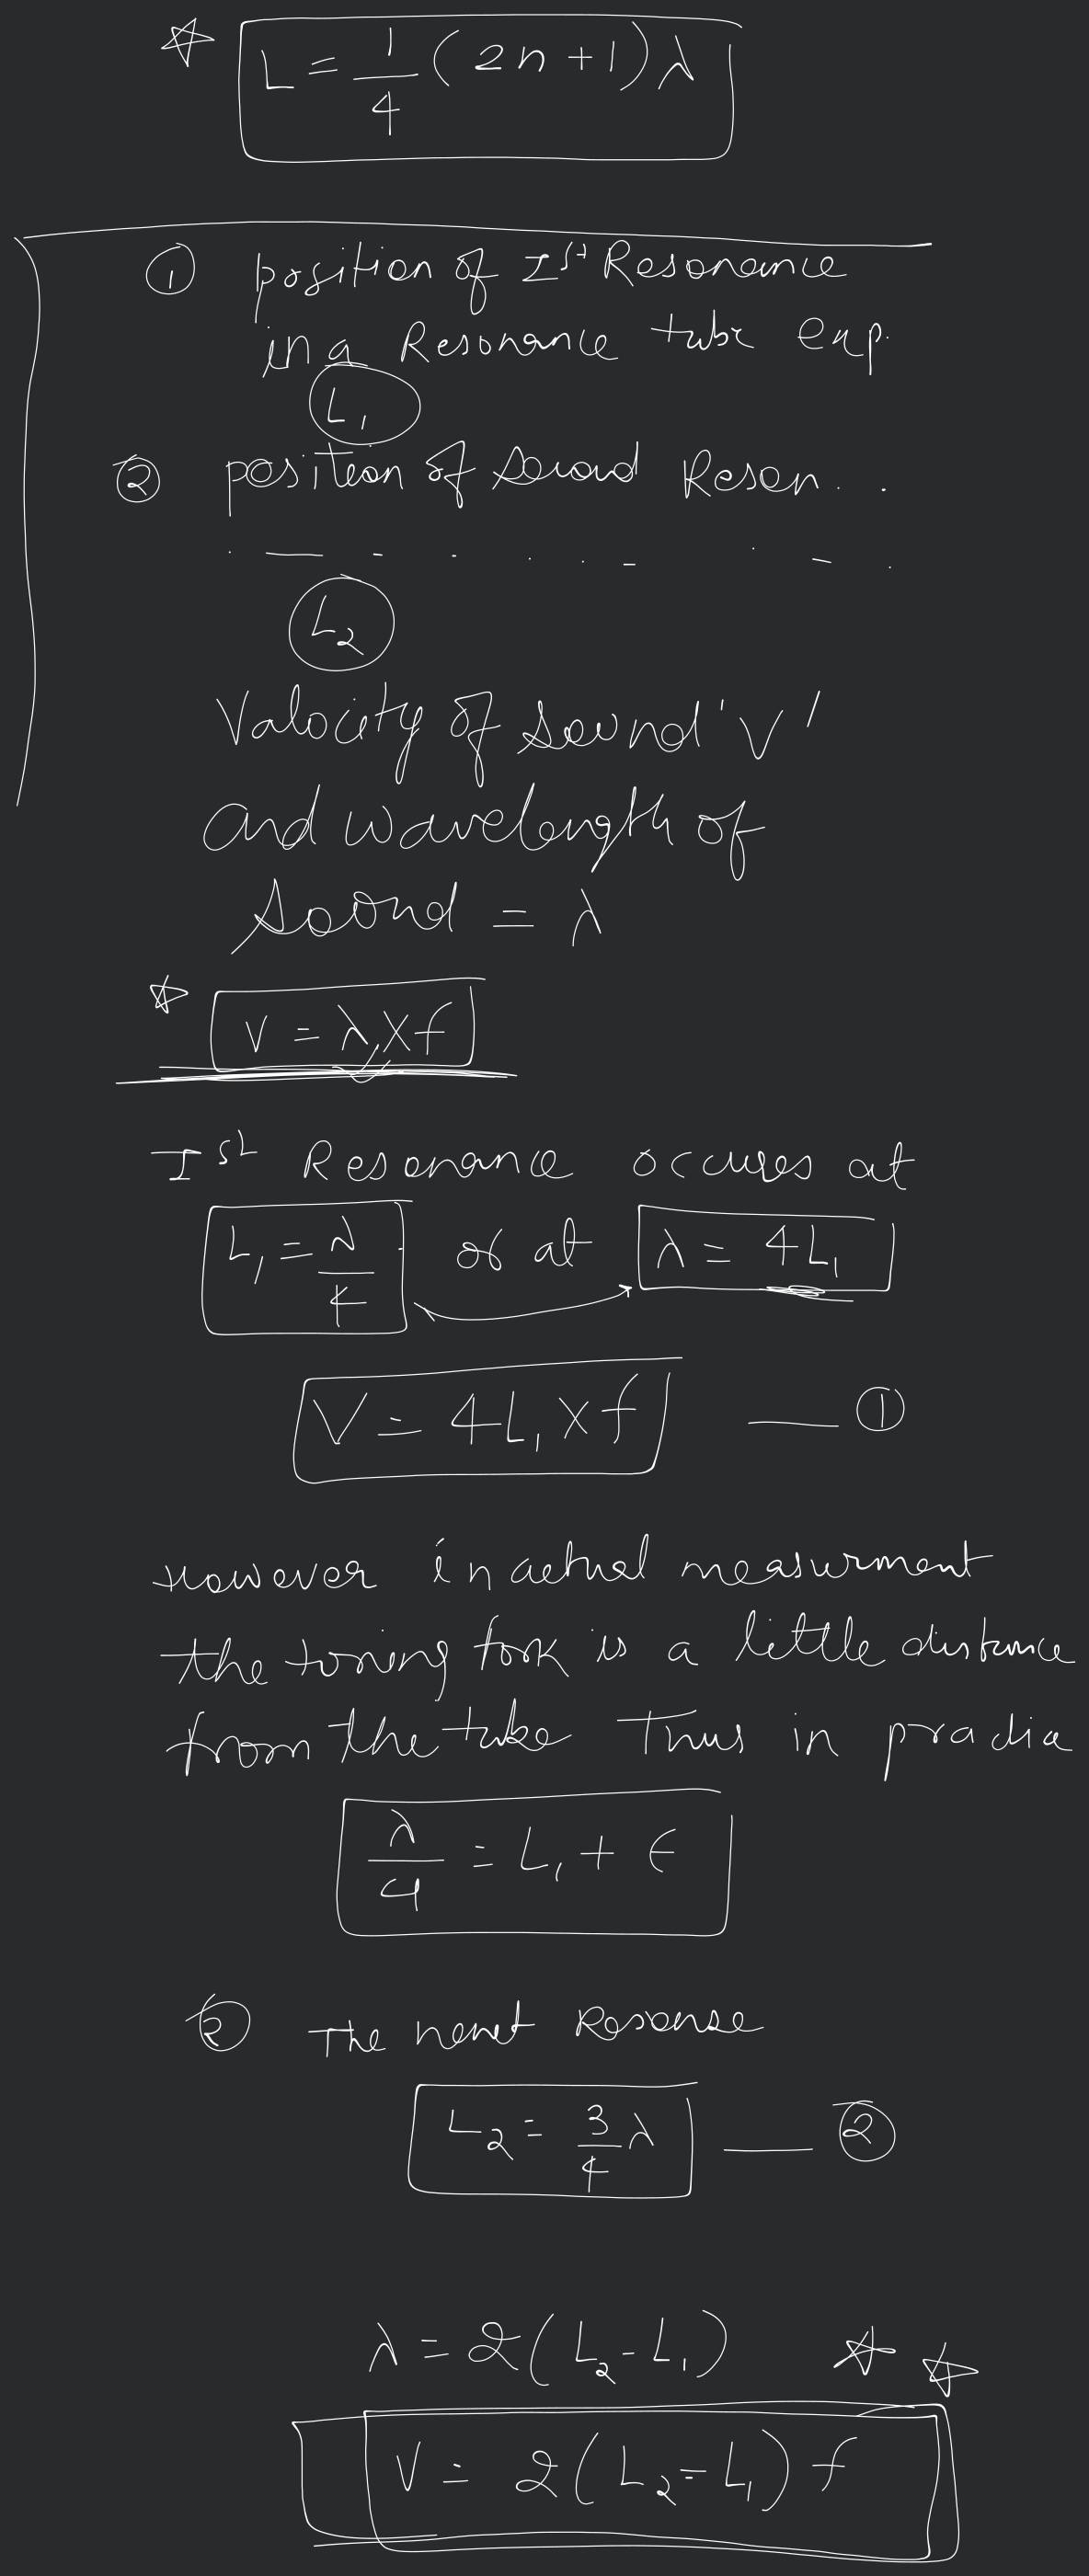 ☆ L = 1/4 (2n+1)λ
① position of Ist Resonance
in a Resonance tube exp.
L₁
② position of second Reson. .
. — - . . . - . - .
L₂
Valocity of sound 'v'
and wavelength of
sound = λ
☆ V = λ × f
Ist Resonance occures at
L₁ = λ/4 or at λ = 4L₁
V = 4L₁ × f — ①
However in actual measurment
the tuning fork is a little distance
from the tube Thus in
λ/4 = L₁ + ϵ
② The next
L₂ = 3/4 λ — ②
λ = 2(L₂ - L₁) ☆ ☆
V = 2(L₂ - L₁) f